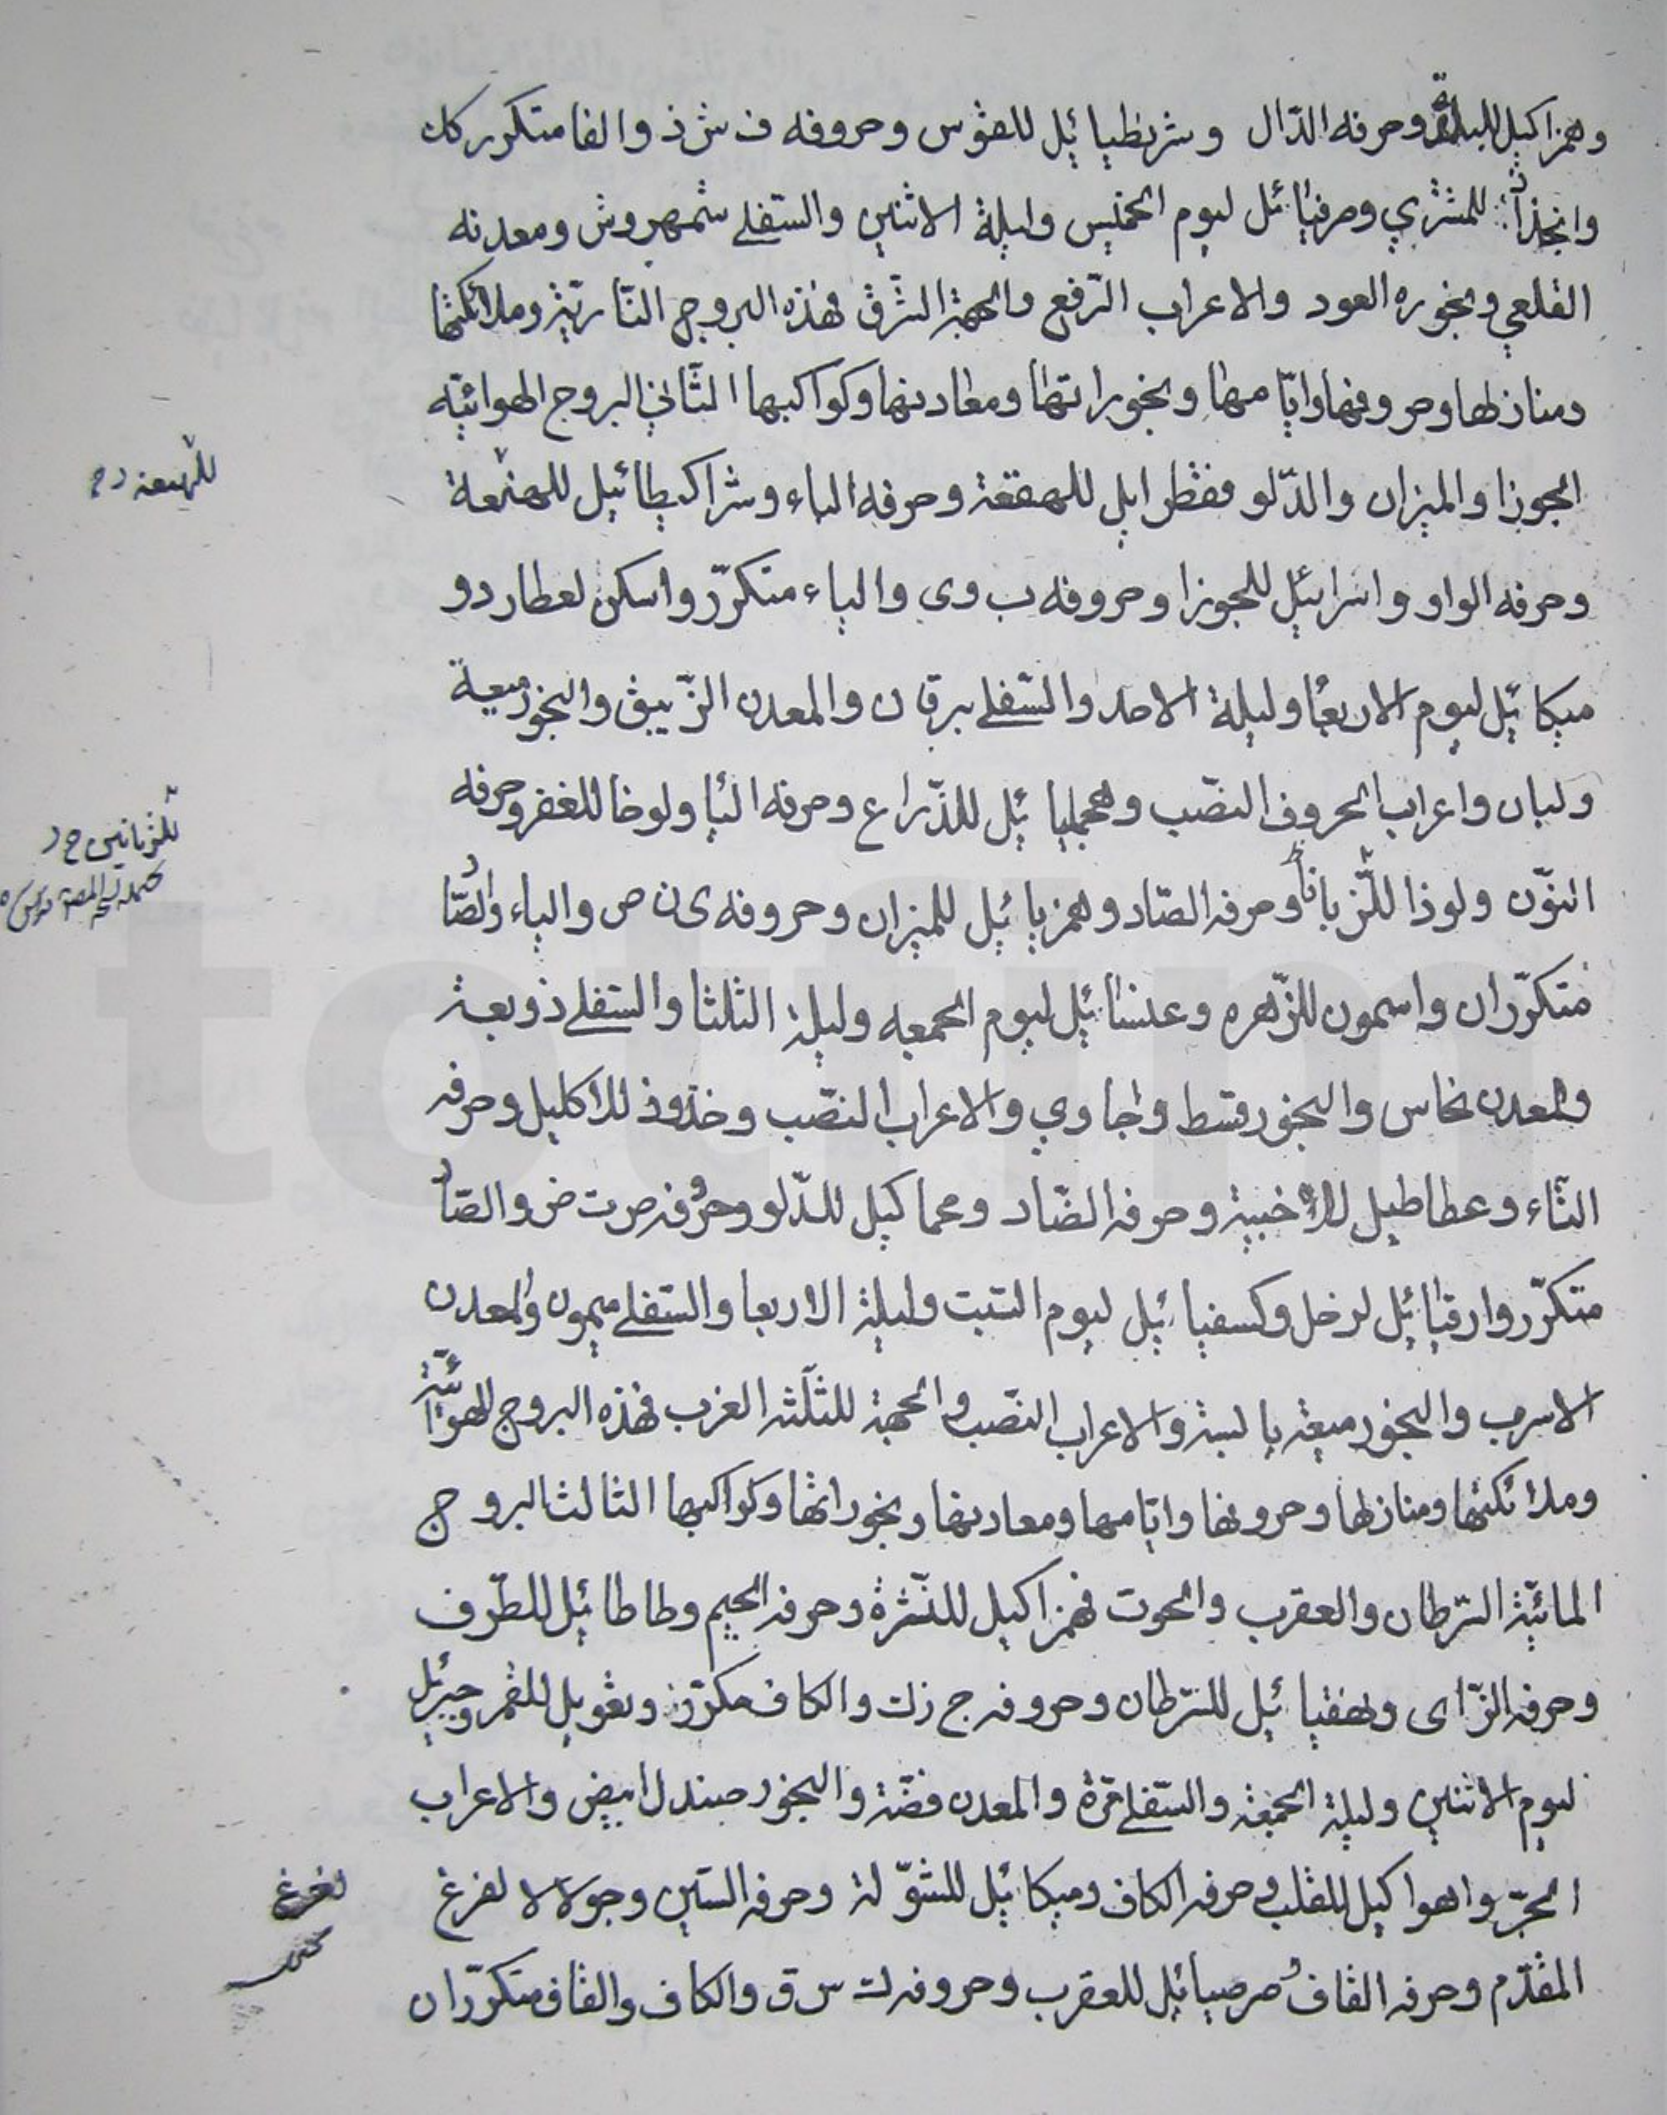 وهمزاكيل للبلدة وحرفه الدّال وشربطيائيل للقوس وحروفه ف ش ذ والفا متكرر كك
للمشتري وصرفيائل ليوم الخميس وليلة الاثنين والسّفلے شمهروش ومعدنه
القلعي وبخوره العود والاعراب الرّفع والجهة الشرق فهذه البروج النّاريّة وملائكتها
ومنازلها وحروفها وايّامها وبخوراتها ومعادنها وكواكبها الثّاني البروج الهوائيّه
الجوزا والميزان والدّلو ففقطرايل للهقعة وحرفه الباء وشراكيطائيل للهنعة
للهنعة
وحرفه الواو واسرائيل للجوزا وحروفه ب و ى والياء متكرّر واسكن لعطارد و
ميكائيل ليوم الاربعا وليلة الاحد والسّفلے برقان والمعدن الزّيبق والبخور ميعة
ولبان واعراب الحروف النصّب وهجليائيل للذّراع وحرفه اليا ولوخا للغفر وحرفه
النوّن ولوذا للزّبانا وحرفه الصّاد وهمزيائيل للميزان وحروفه ى ن ص والياء والصّا
متكرّران واسمون للزّهره وعنيائيل ليوم الجمعه وليلة الثلثا والسّفلے ذوبعة
والمعدن نحاس والبخور قسط وجاوي والاعراب النصّب وخذوذ للاكليل وحرفه
التّاء وعطاطيل للاخبية وحرفه الضّاد وعماكيل للدّلو وحروفه ص ت ض والصّاد
متكرّر وارقيائيل لزحل وكسفيائيل ليوم السّبت وليلة الاربعا والسّفلے ميمون والمعدن
الاسرب والبخور ميعة يابسة والاعراب النصّب والجهة للثلّثه الغرب فهذه البروج الهوائيّة
وملائكتها ومنازلها وحروفها وايّامها ومعادنها وبخوراتها وكواكبها الثالث البروج
المائيّة السّرطان والعقرب والحوت فهمزاكيل للنّثرة وحرفه الجيم وطاطائيل للطّرف
وحرفه الزّاى وهقيائيل للسّرطان وحروفه ج ز ك والكاف مكرّر وبغويل للقمر وجبرئيل
ليوم الاثنين وليلة الجمعة والسّفلے مرّة والمعدن فضّة والبخور صندل ابيض والاعراب
الجرّ واهواكيل للقلب وحرفه الكاف وميكائيل للشّولة وحرفه السّين وجولالا لفرغ
لفرغ
المقدّم وحرفه القاف وصرصيائيل للعقرب وحروفه ك س ق والكاف والقاف متكرّران
totfim